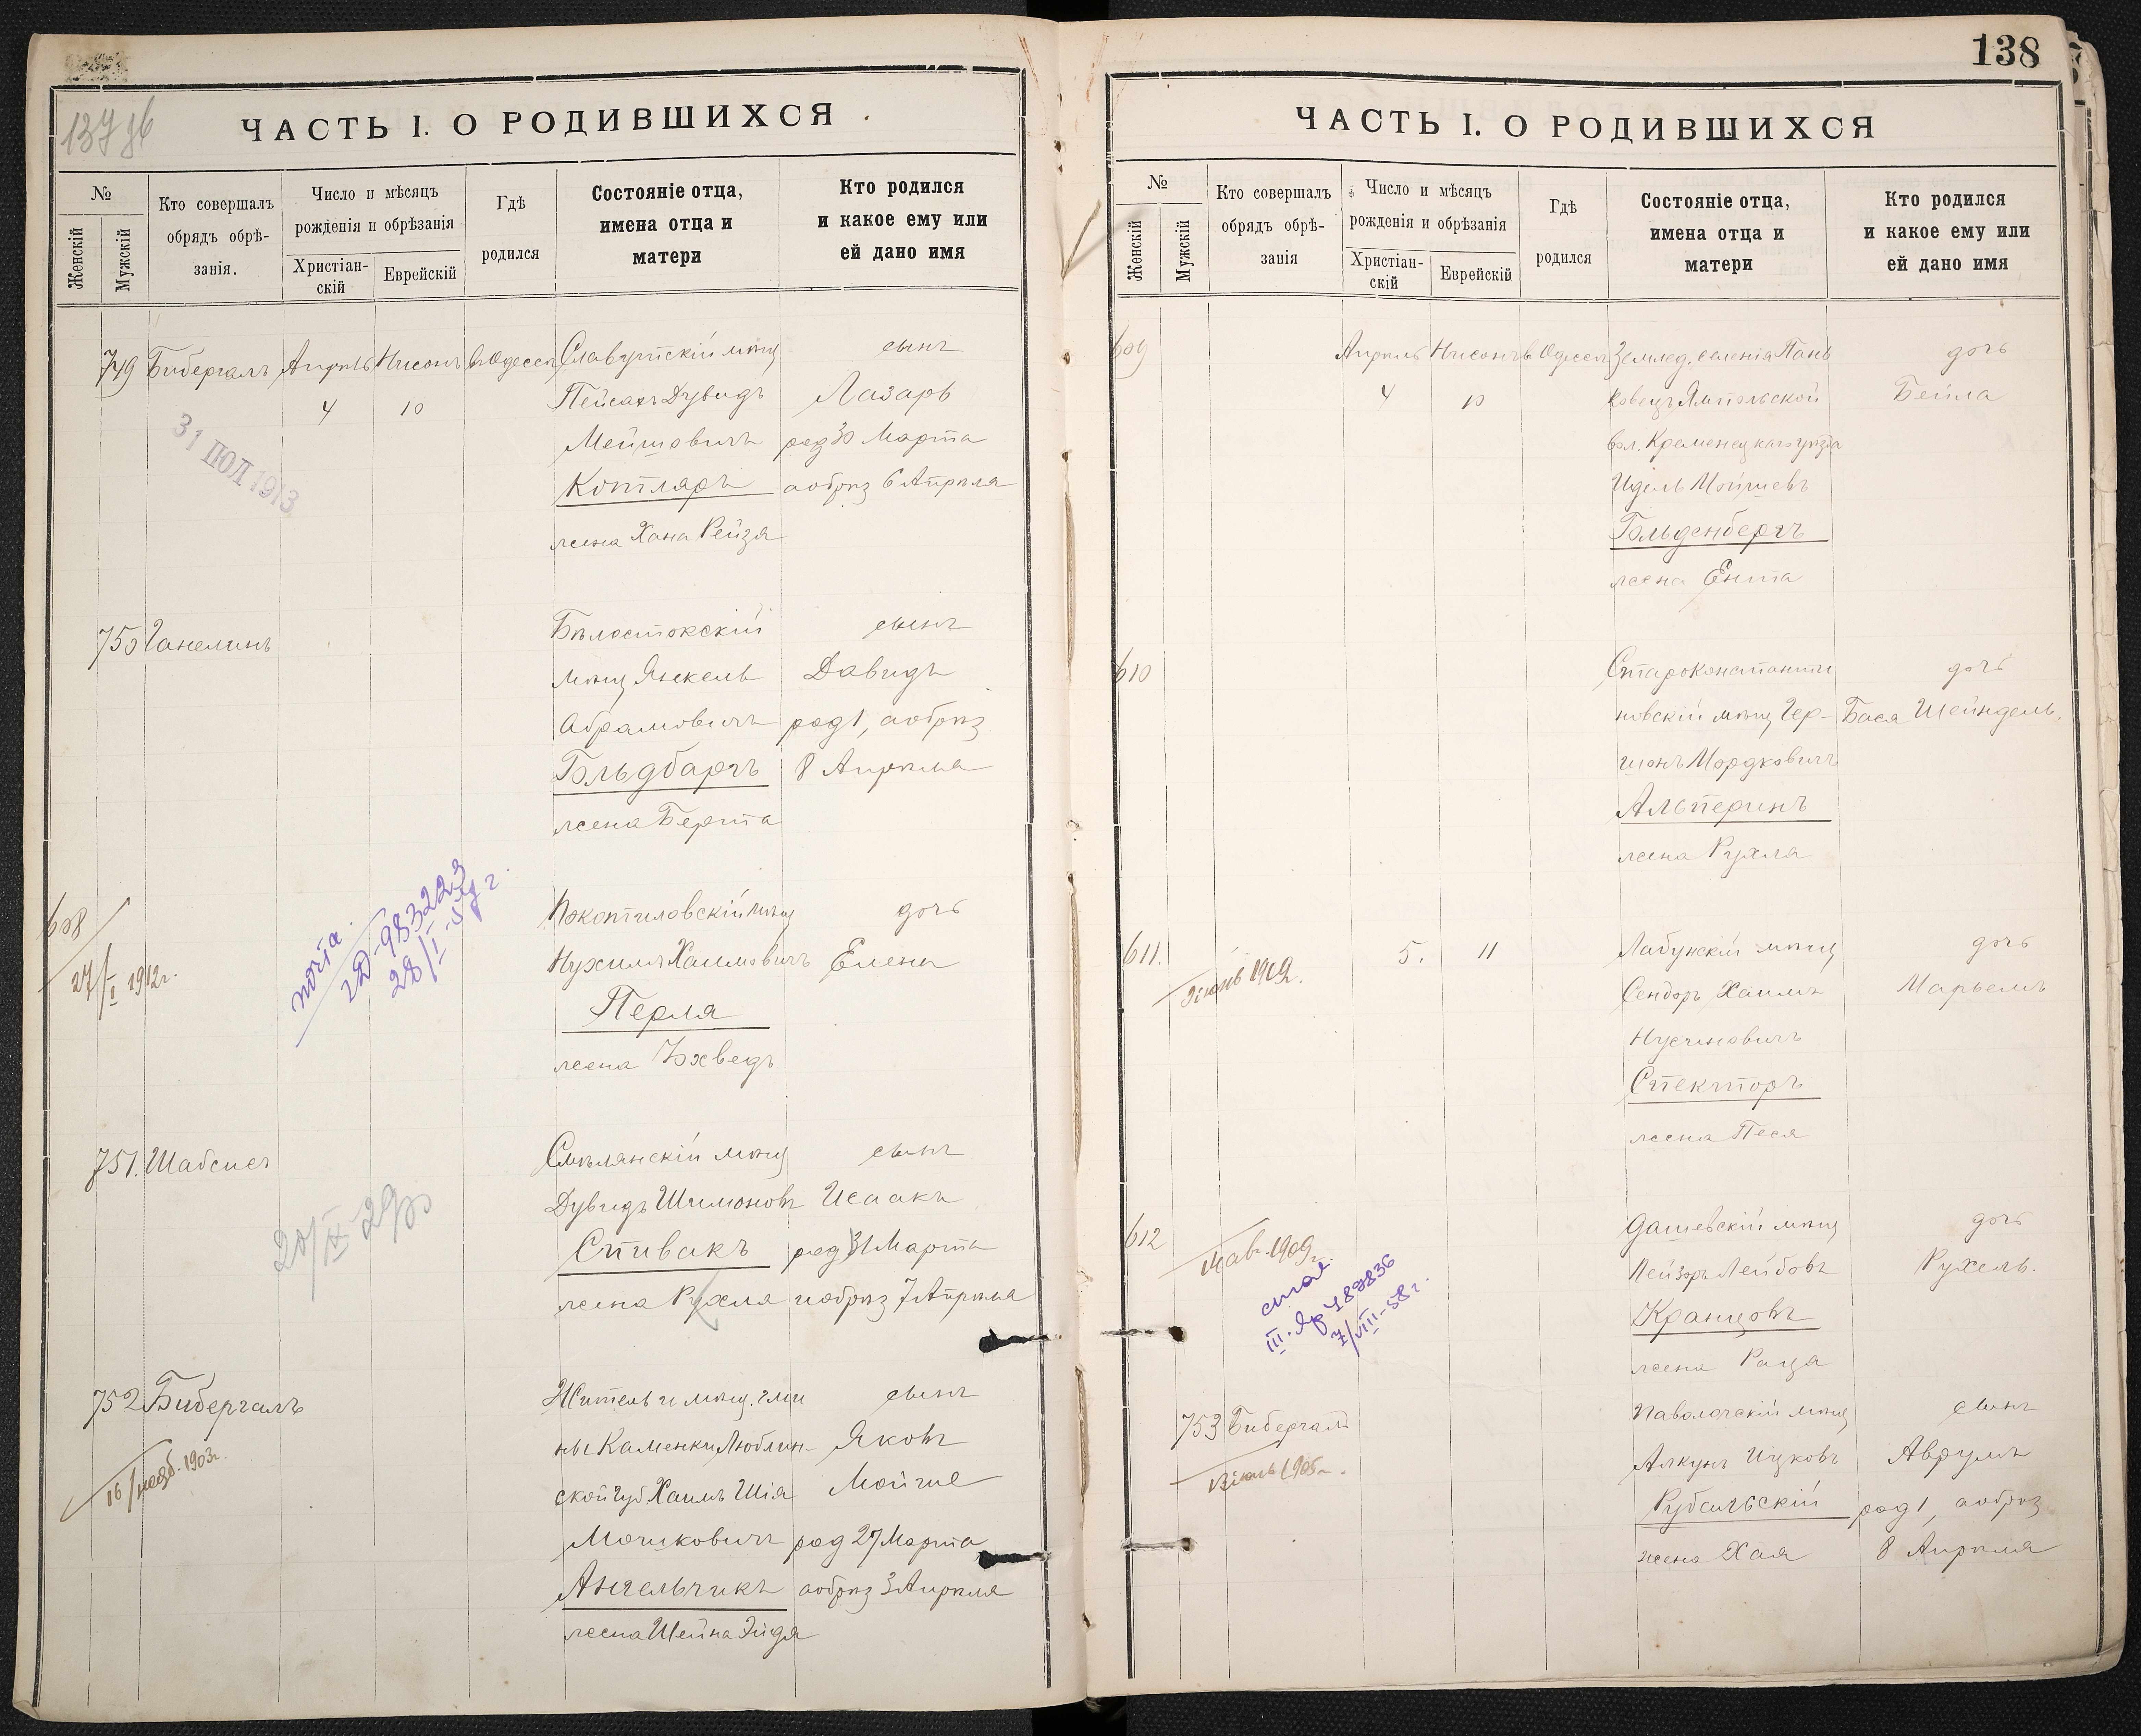 137 об
ЧАСТЬ I. О РОДИВШИХСЯ
№
Женскій
Мужскій
Кто совершалъ
обрядъ обрѣ-
занія.
Число и мѣсяцъ
рожденія и обрѣзанія
Христіан-
скій
Еврейскій
Гдѣ
родился
Состояніе отца,
имена отца и
матери
Кто родился
и какое ему или
ей дано имя
749 Бибергалъ Апрѣль Нисонъ въ Одессѣ Славутскій мѣщ сынъ
4 10 Пейсахъ Дувидъ Лазарь
Мейшовичъ род 30 Марта
31 ІЮЛ 1913
Котляръ а обрѣз 6 Апрѣля
жена Хана Рейзя
750 Ганелинъ Бѣлостокскій сынъ
мѣщ Янкель Давидъ
Абрамовичъ род 1, а обрѣз
Гольдбаргъ 8 Апрѣля
жена Берта
608
27/I 1912г.
почта.
983223
28/I
Нухимъ Хаимовичъ Елена
дочь
Перля
жена Йохведъ
751. Шабсисъ Смѣлянскій мѣщ сынъ
Дувидъ Шимоновъ Исаакъ
20/IX-29
Спивакъ род 31 Марта
жена Рухля и обрѣз 7 Апрѣля
752 Бибергалъ Житель и мѣщ. гми сынъ
ны Каменки Люблин- Яковъ
16/нояб. 1903г.
ской губ Хаимъ Шія Мойше
Мошковичъ род 27 Марта
Ангельчикъ а обрѣз 3 Апрѣля
жена Шейна Эйдя
138
ЧАСТЬ I. О РОДИВШИХСЯ
№
Женскій
Мужскій
Кто совершалъ
обрядъ обрѣ-
занія
Число и мѣсяцъ
рожденія и обрѣзанія
Христіан-
скій
Еврейскій
Гдѣ
родился
Состояніе отца,
имена отца и
матери
Кто родился
и какое ему или
ей дано имя
609 Апрѣль Нисонъ въ Одессѣ Землед. селенія Пань дочь
4 10 ковецъ Ямпольской Бейла
вол. Кременецкаго уѣзда
Идель Мойшевъ
Гольденбергъ
жена Ента
610 Староконстанти дочь
новскій мѣщ Гер- Бася Шейндель.
шонъ Мордковичъ
Альперинъ
жена Рухля
611. 5. 11 Лабунскій мѣщ дочь
1912.
Сендоръ Хаимъ Марьемъ
Нусиновичъ
Спекторъ
жена Песя
612 Дашевскій мѣщ дочь
14 авг. 1909г.
Лейзоръ Лейбовъ Рухель.
7/VIII-58г.
Кранцовъ
жена Раця
753 Бибергалъ Паволочскій мѣщ сынъ
Алкунъ Ицковъ Аврумъ
Рубальскій род 1, а обрѣз
жена Хая 8 Апрѣля